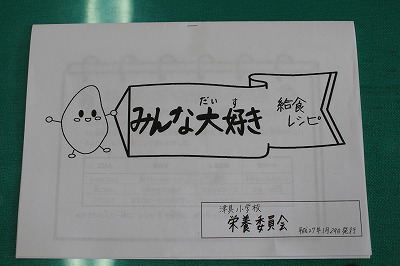 だいす
みんな大好き
給食
レシピ
津具小学校
栄養委員会
平成27年1月29日発行